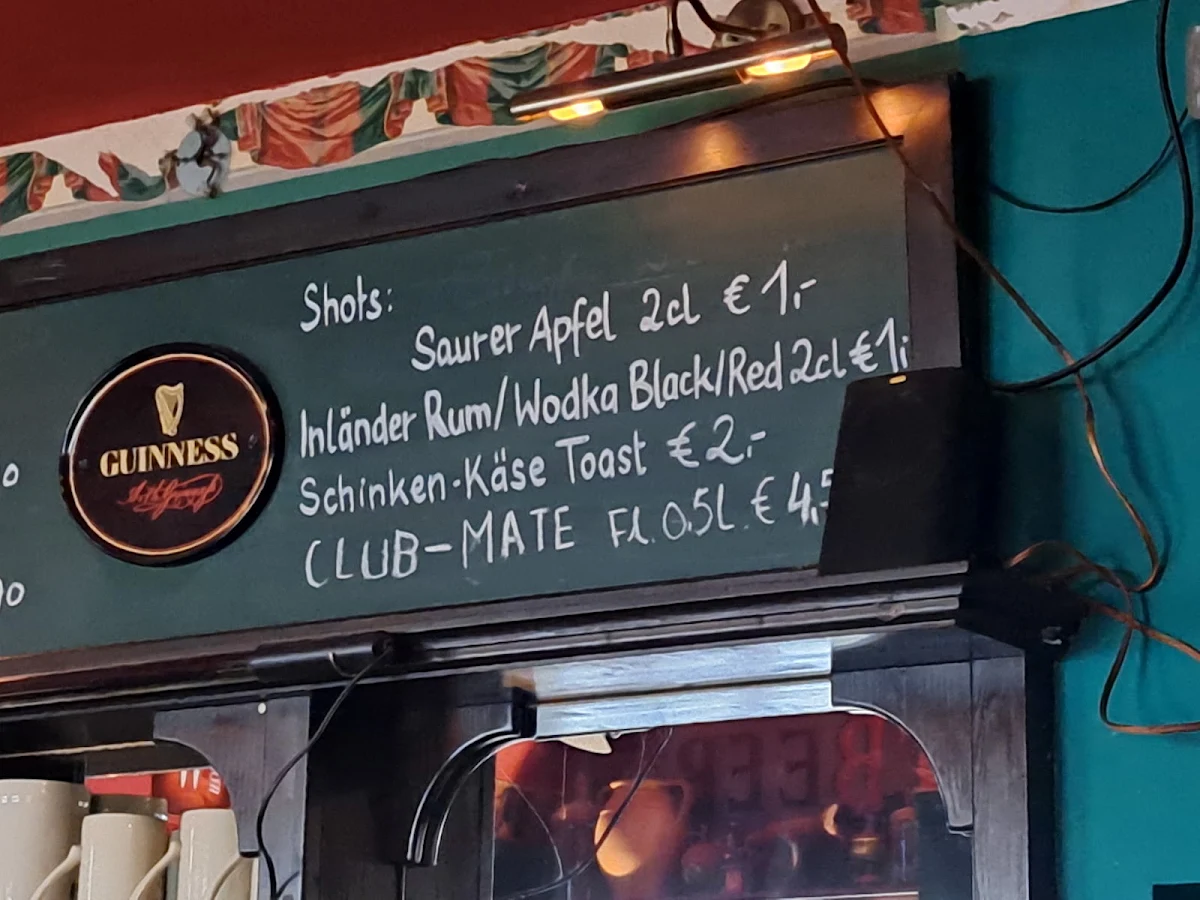 Shots:
Saurer Apfel 2cl € 1,-
Inländer Rum/Wodka Black/Red 2cl € 1,
Schinken-Käse Toast € 2,-
CLUB-MATE Fl. 0.5L. € 4,5
GUINNESS
BEER